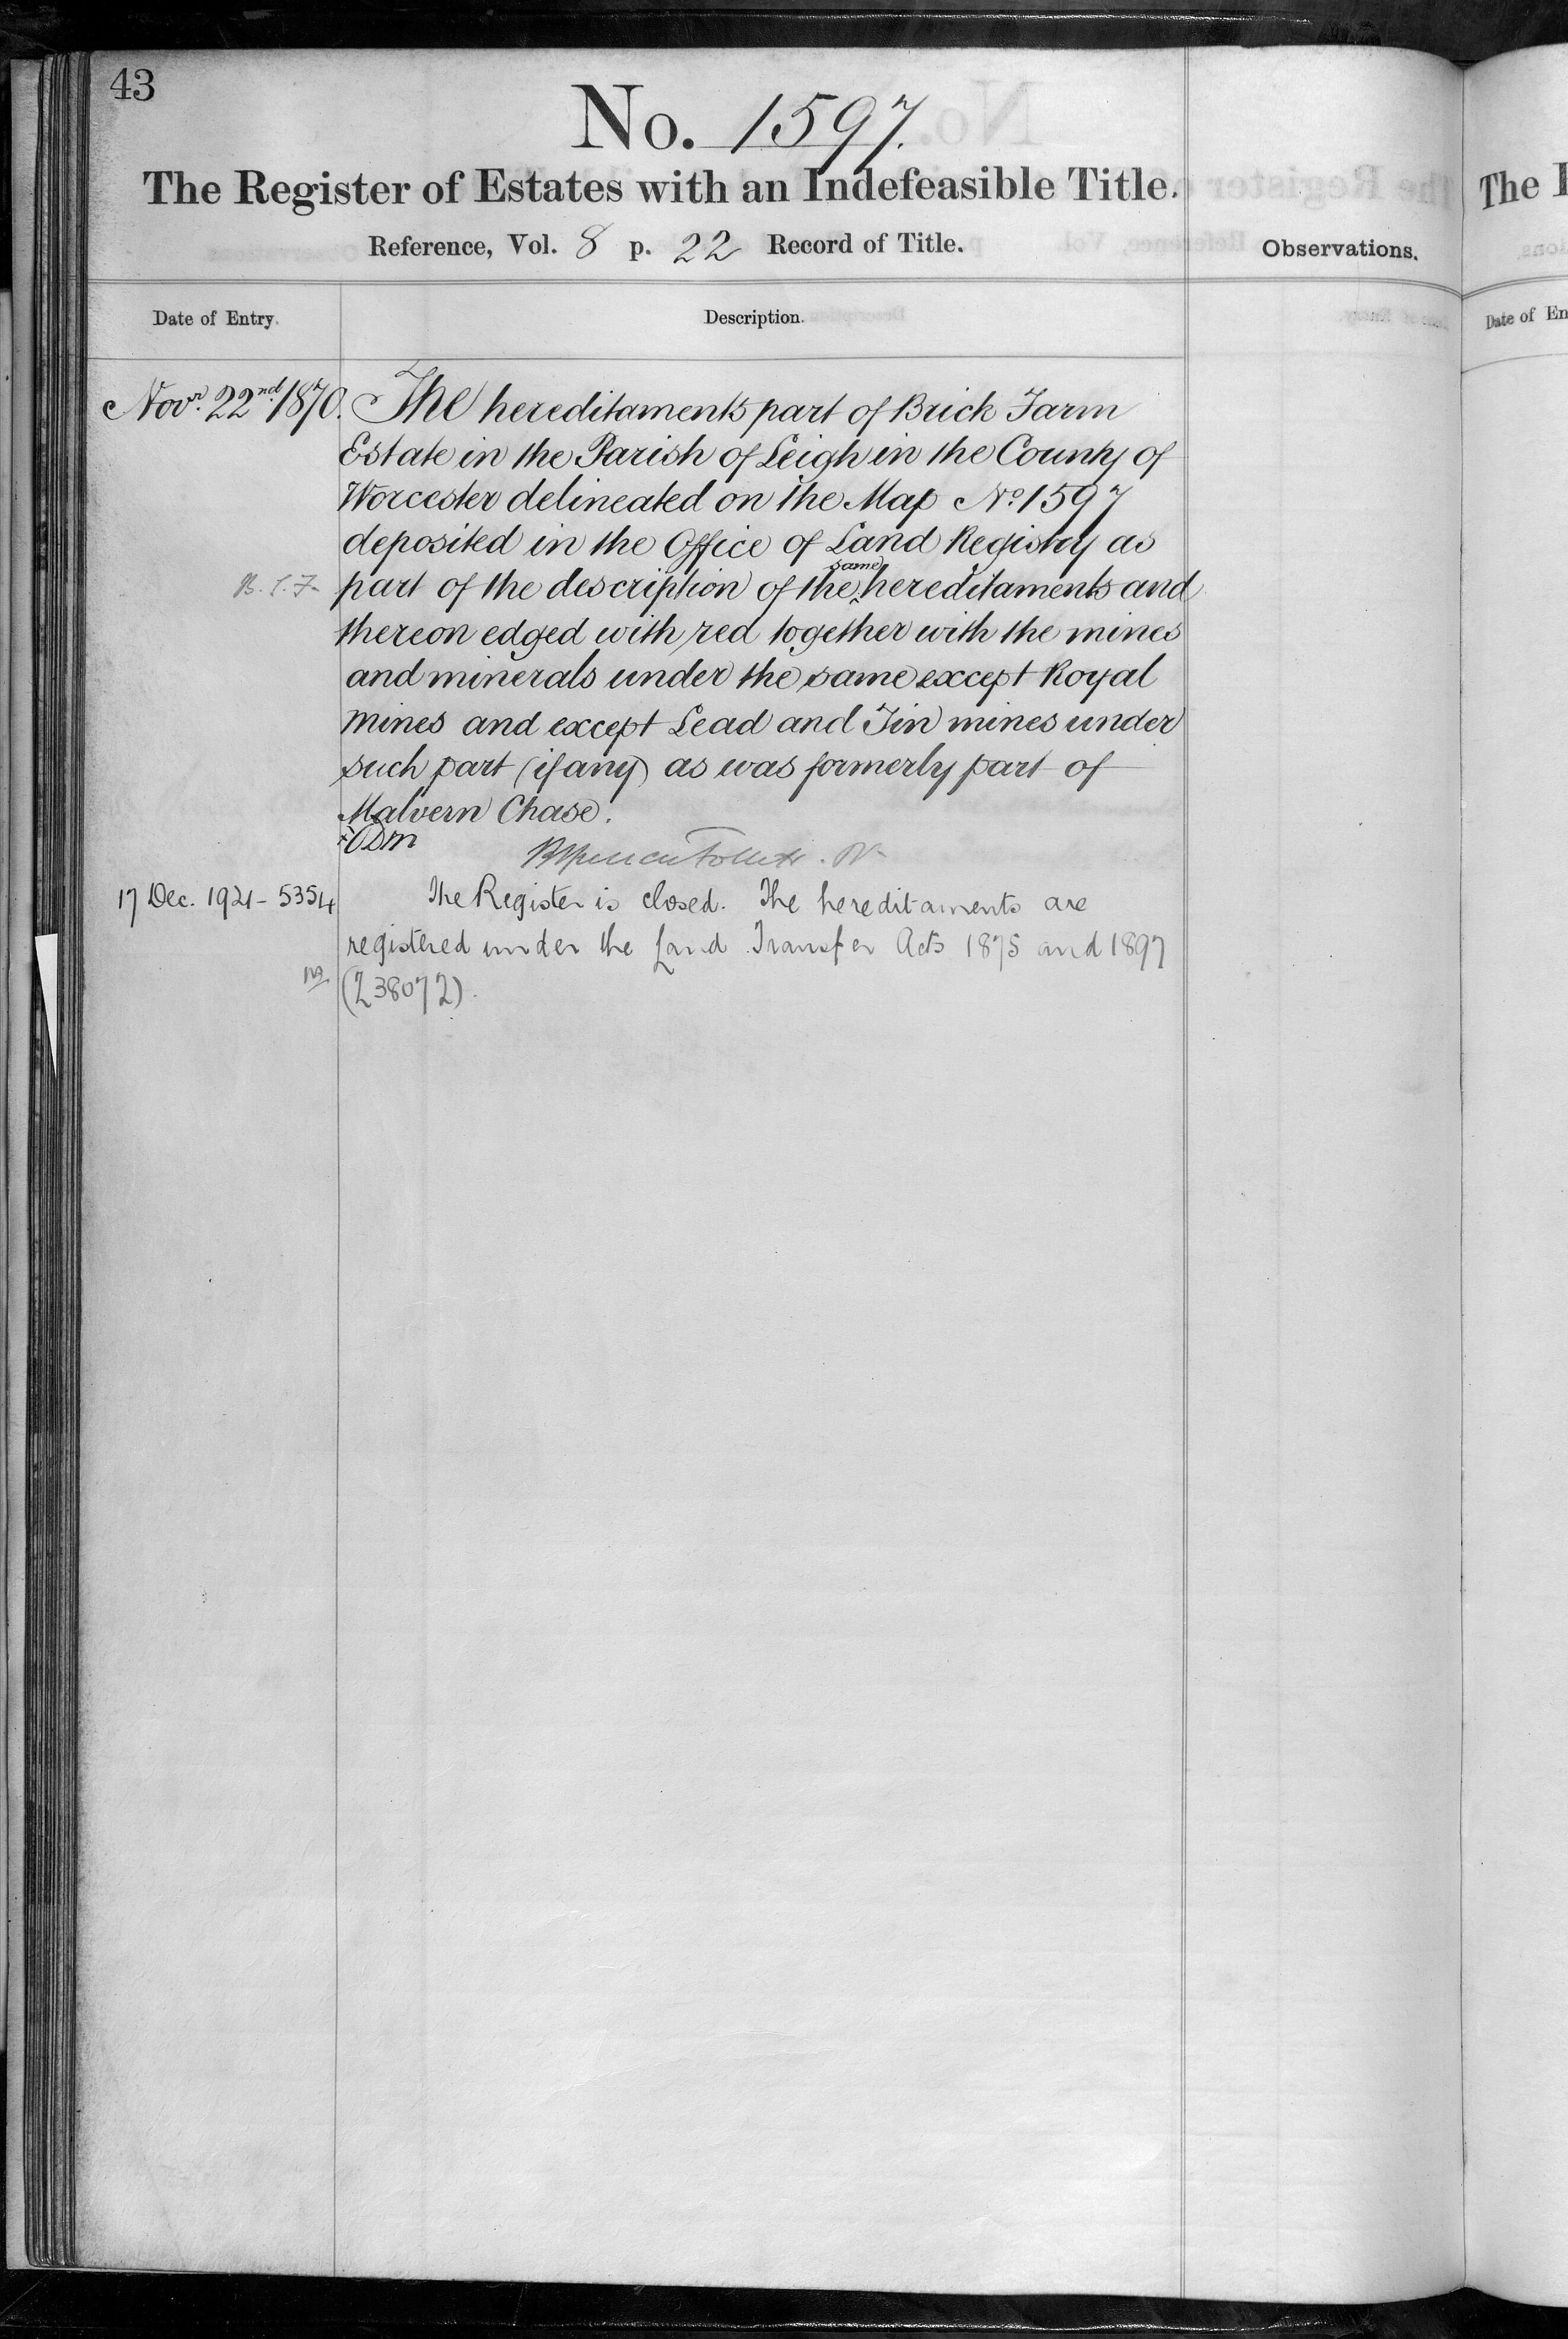 43
No. 1597.
The Register of Estates with an Indefeasible Title.
Reference, Vol. 8 p. 22 Record of Title.
Observations.
Date of Entry.
Description.
Novr. 22nd. 1870. The hereditaments part of Brick Farm
Estate in the Parish of Leigh in the County of
Worcester delineated on the Map No. 1597
deposited in the Office of Land Registry as
B.S.F. part of the description of the ^same hereditaments and
thereon edged with red together with the mines
and minerals under the same except Royal
mines and except Lead and Tin mines under
such part (if any) as was formerly part of
Malvern Chase.
17 Dec. 1921 - 5354 The Register is closed. The hereditaments are
registered under the Land Transfer Acts 1875 and 1897
(238072).
The
Date of En